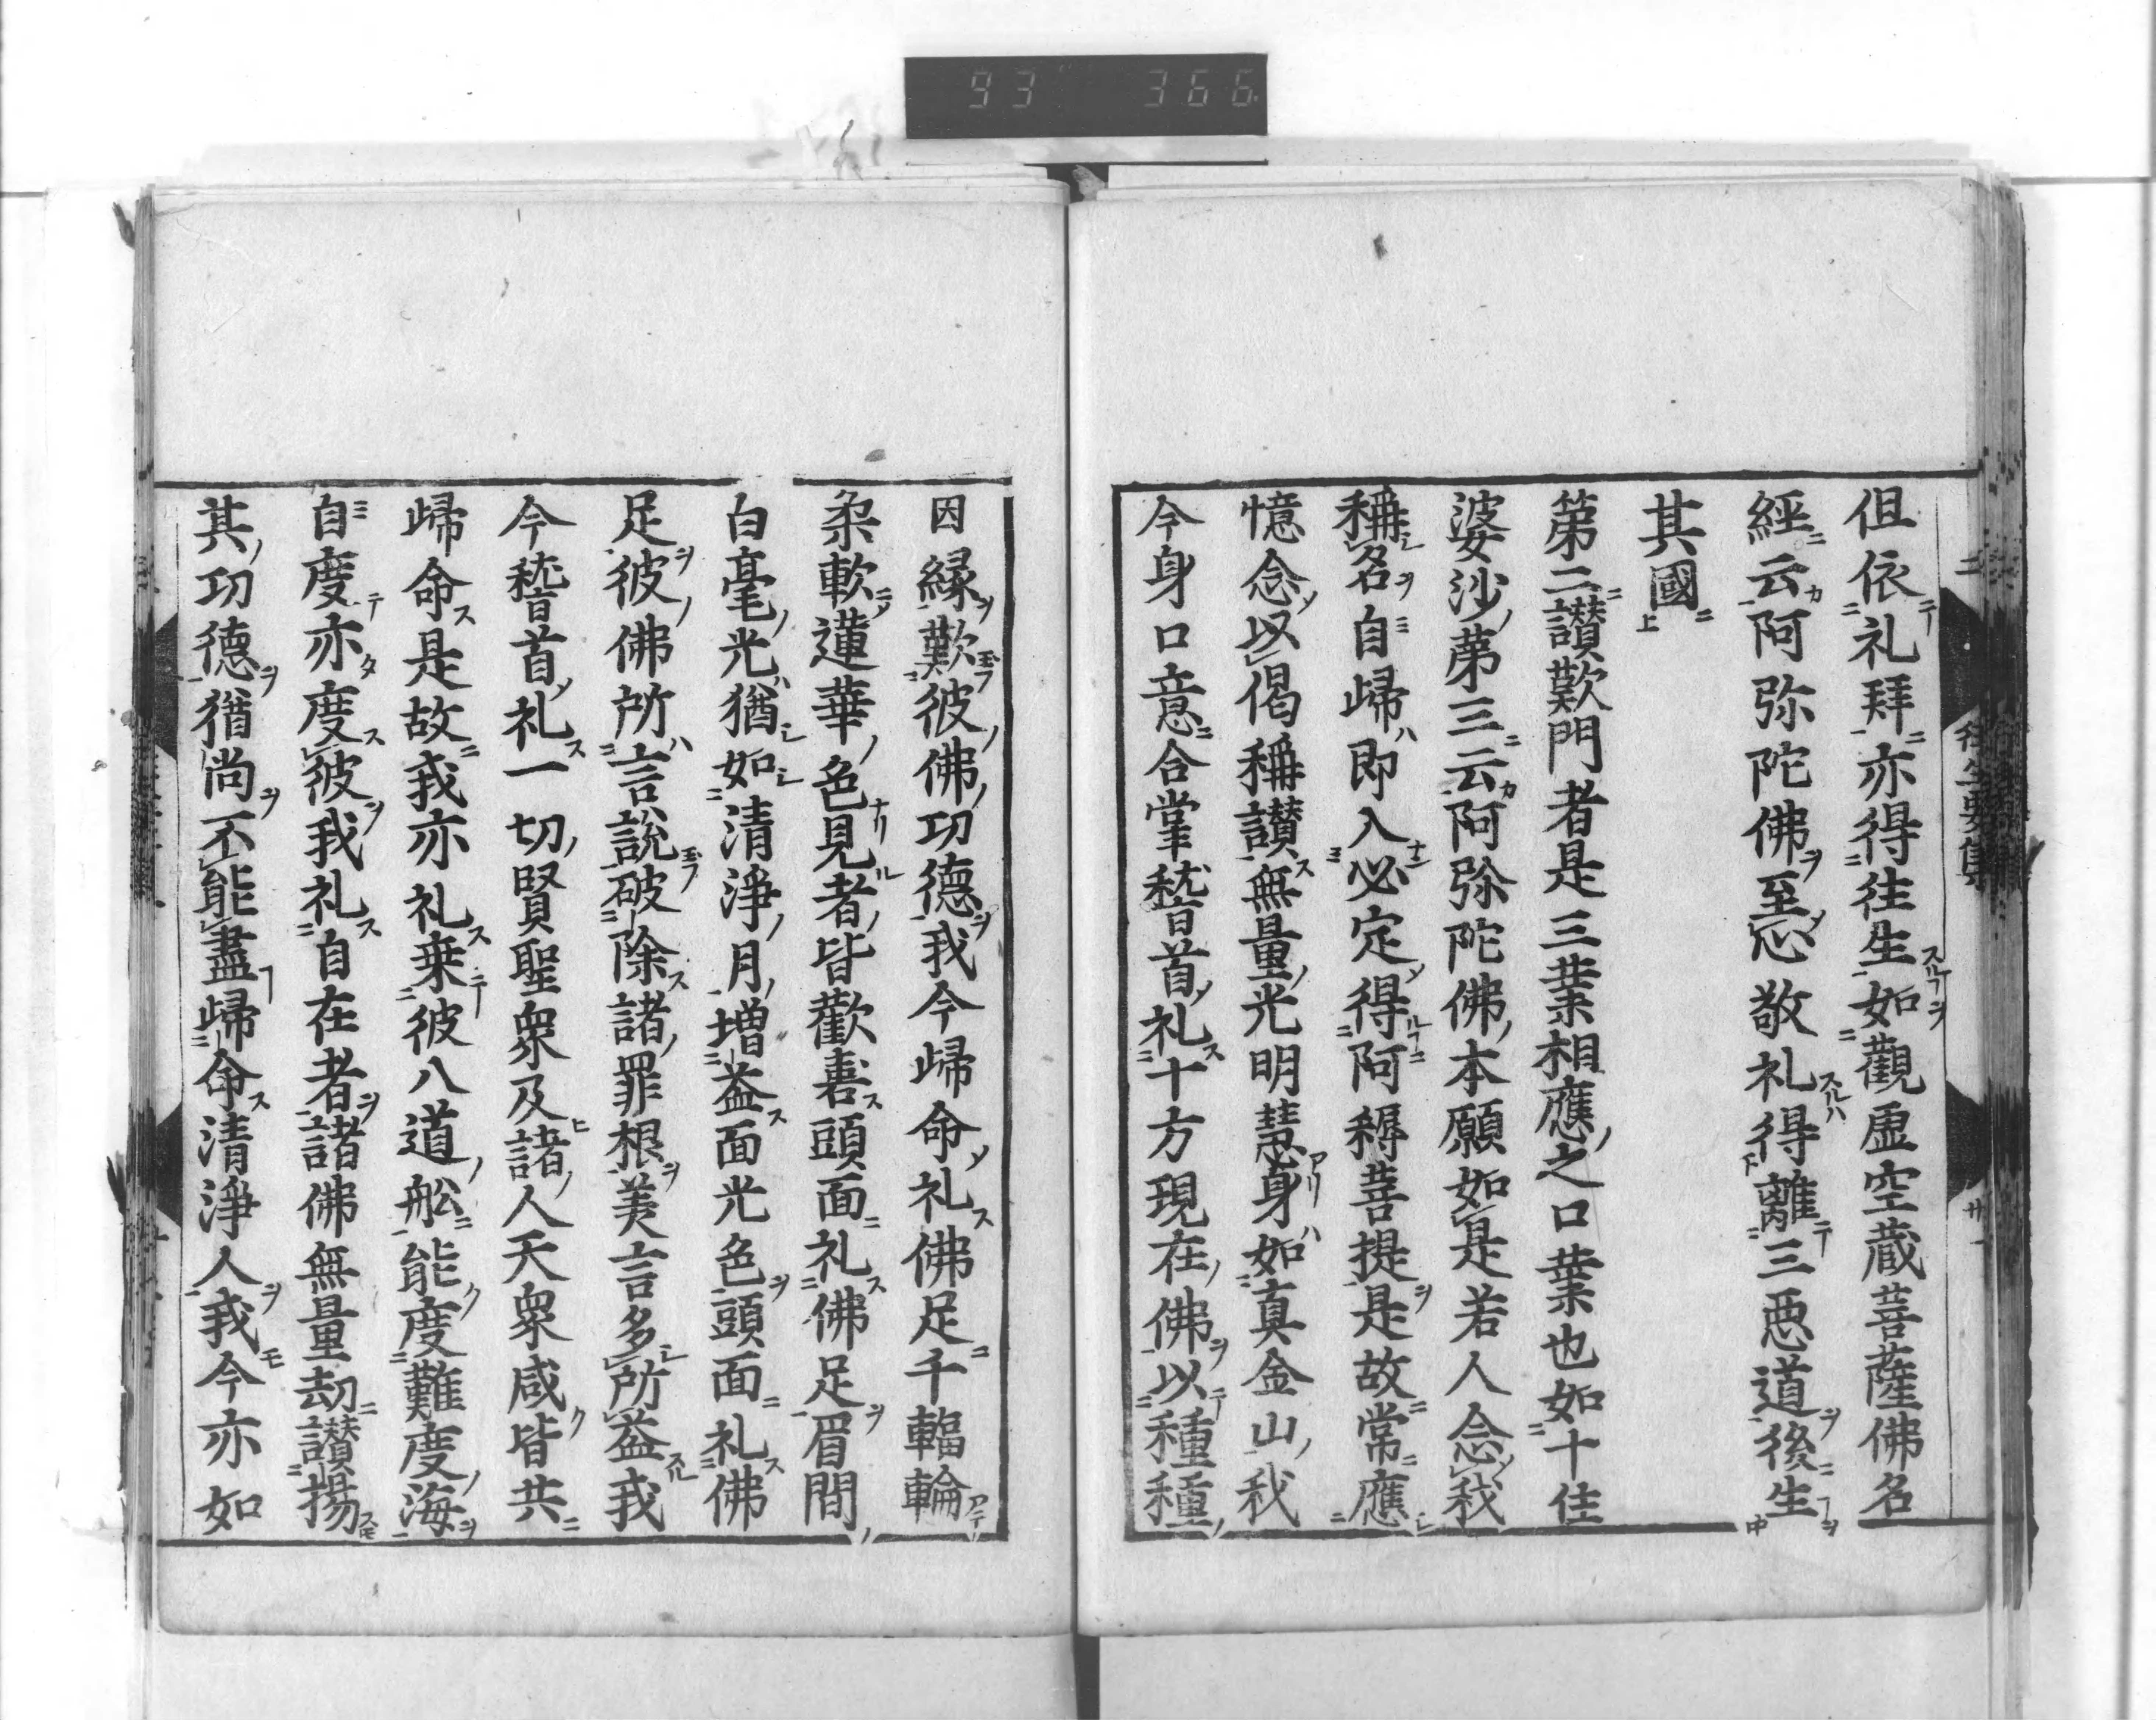 93 366
但依礼拜亦得往生如觀虛空蔵菩薩佛名
經云阿弥陀佛至心敬礼得離三惡道後生
其國
第二讃歎門者是三業相應之口業也如十住
婆沙第三云阿弥陀佛本願如是若人念我
稱名自歸即入必定得阿耨菩提是故常應
憶念以偈稱讃無量光明慧身如真金山我
今身口意合掌稽首礼十方現在佛以種種
因縁歎彼佛功德我今歸命礼佛足千輻輪
柔軟蓮華色見者皆歡喜頭面礼佛足眉間
白毫光猶如清淨月増益面光色頭面礼佛
足彼佛所言說破除諸罪根美言多所益我
今稽首礼一切賢聖衆及諸人天衆咸皆共
歸命是故我亦礼乗彼八道船能度難度海
自度亦度彼我礼自在者諸佛無量劫讃揚
其功德猶尚不能盡歸命清淨人我今亦如